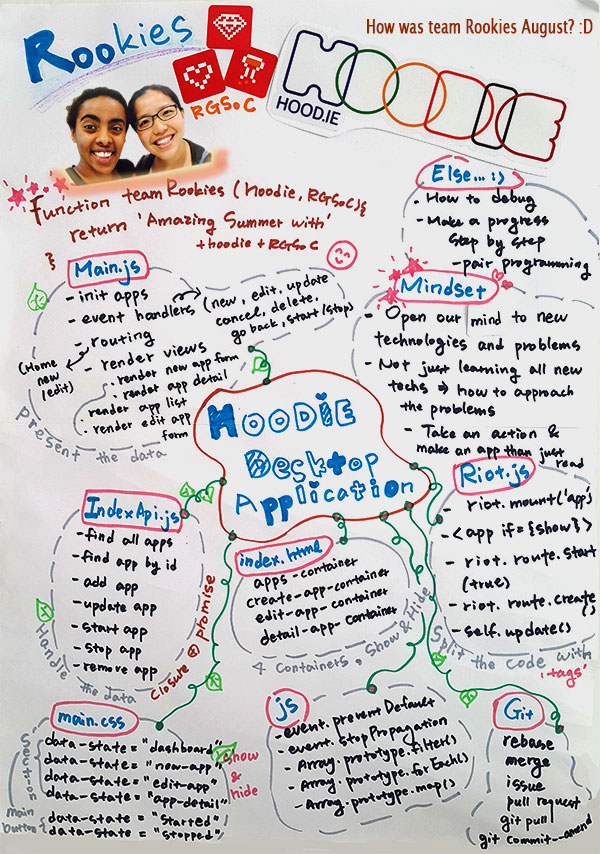 How was team Rookies August? :D
Rookies
RGSoC
HOODIE
HOOD.IE
Function team Rookies (Hoodie, RGSoC){
return 'Amazing Summer with'
+ hoodie + RGSoC
}
Else...:)
· How to debug
- Make a progress
step by step
- pair programming
Mindset
- Open our mind to new
technologies and problems
- Not just learning all new
techs ⇒ how to approach
the problems
- Take an action &
make an app than just
read
Main.js
- init apps
- event handlers
(new, edit, update
cancel, delete,
go back, start/stop)
- routing
(Home
new
/edit)
- render views
· render new app form
· render app detail
render app list
· render edit app
form
present the data
HOODIE
Desktop
Application
IndexApi.js
- find all apps
- find app by id
- add app
- update app
- start app
- stop app
- remove app
Handle
the data
closure ⊕ promise
index.html
apps-container
create-app-container
edit-app-container
detail-app-container
4 containers, Show & Hide
Riot.js
- riot.mount('app')
- <app if={show}>
- riot.route.start
(true)
- riot.route.create()
- self.update()
Split the code with
'tags'
main.css
Section
data-state = "dashboard"
data-state = "new-app"
data-state = "edit-app"
data-state = "app-detail"
show
&
hide
main
button
data-state = "started"
data-state = "stopped"
js
- event.preventDefault
- event.stopPropagation
- Array.prototype.filter()
- Array.prototype.forEach()
- Array.prototype.map()
Git
rebase
merge
issue
pull request
git pull
git commit --amend